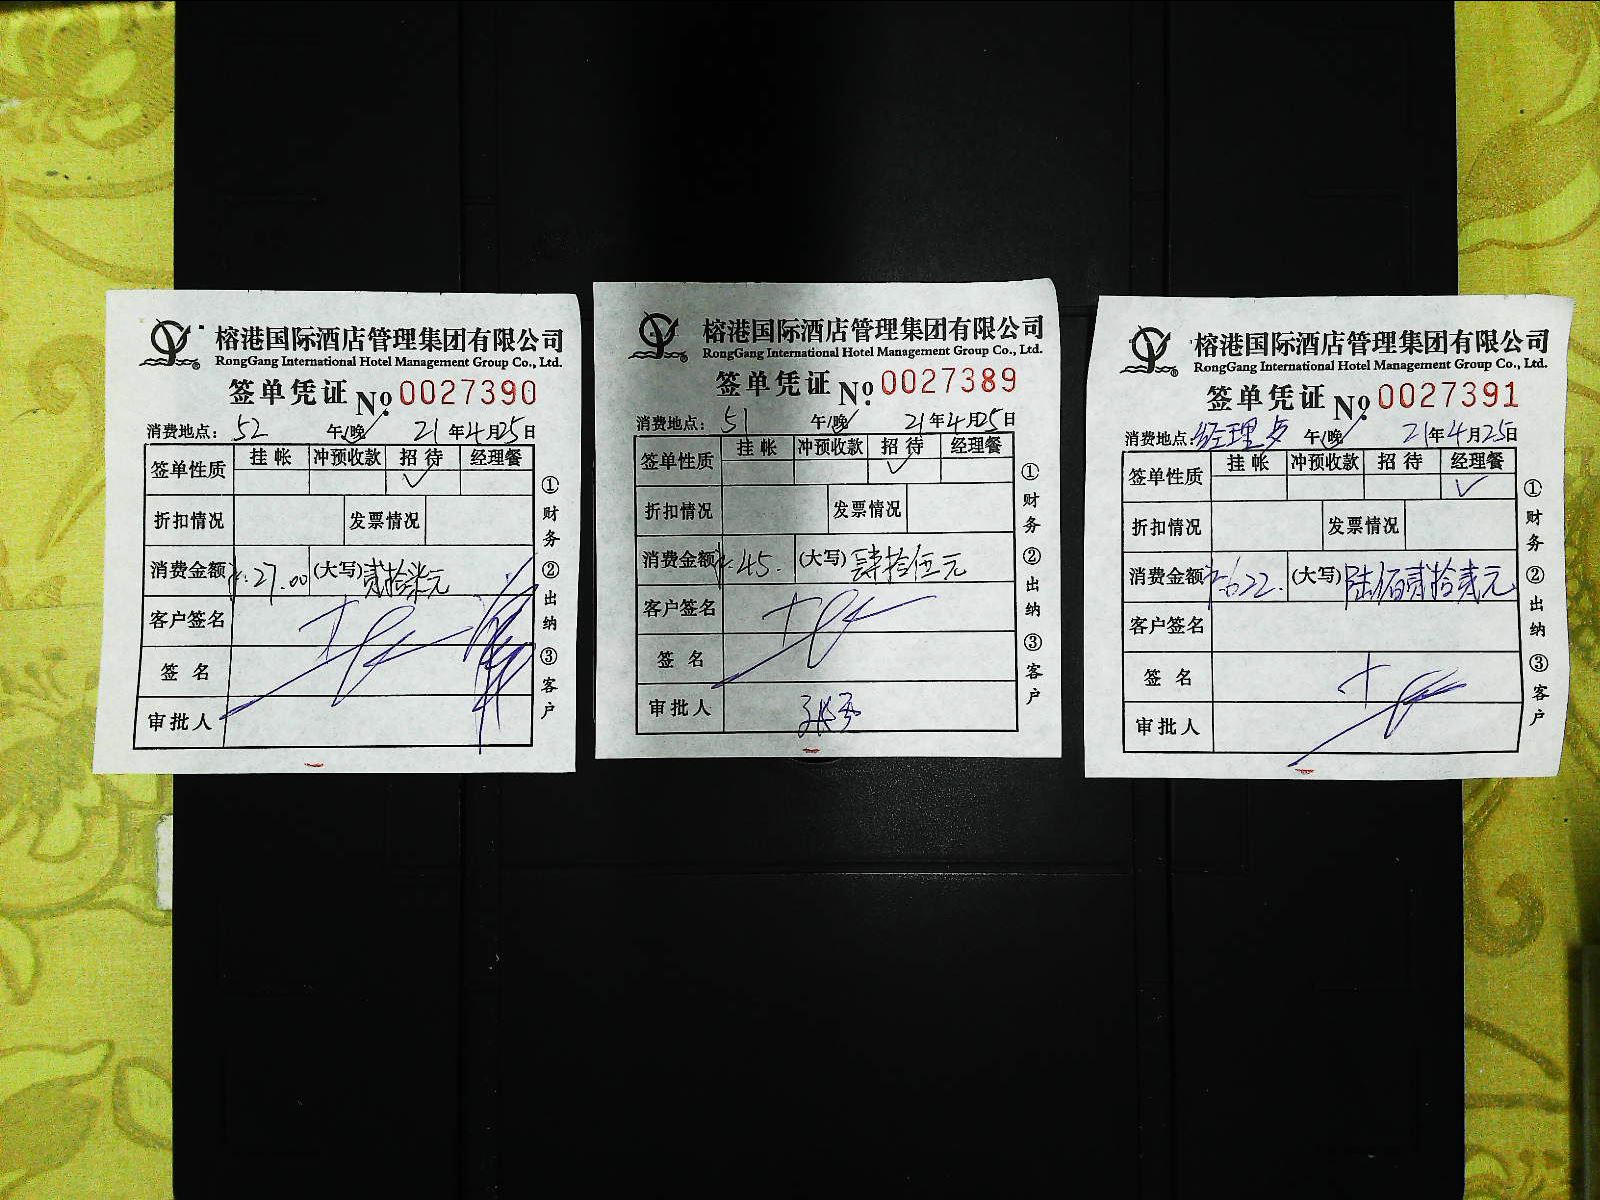 榕港国际酒店管理集团有限公司
RongGang International Hotel Management Group Co., Ltd.
签单凭证 No. 0027390
消费地点: 52 午/晚✓ 21年4月25日
签单性质 挂帐 冲预收款 招待 经理餐
✓
折扣情况 发票情况
消费金额 ¥:27.00 (大写) 贰拾柒元
客户签名
签名
审批人
①财务 ②出纳 ③客户
榕港国际酒店管理集团有限公司
RongGang International Hotel Management Group Co., Ltd.
签单凭证 No. 0027389
消费地点: 51 午/晚✓ 21年4月25日
签单性质 挂帐 冲预收款 招待 经理餐
✓
折扣情况 发票情况
消费金额 ¥:45. (大写) 肆拾伍元
客户签名
签名
审批人
①财务 ②出纳 ③客户
榕港国际酒店管理集团有限公司
RongGang International Hotel Management Group Co., Ltd.
签单凭证 No. 0027391
消费地点: 经理 午/晚✓ 21年4月25日
签单性质 挂帐 冲预收款 招待 经理餐
✓
折扣情况 发票情况
消费金额 ¥:622. (大写) 陆佰贰拾贰元
客户签名
签名
审批人
①财务 ②出纳 ③客户